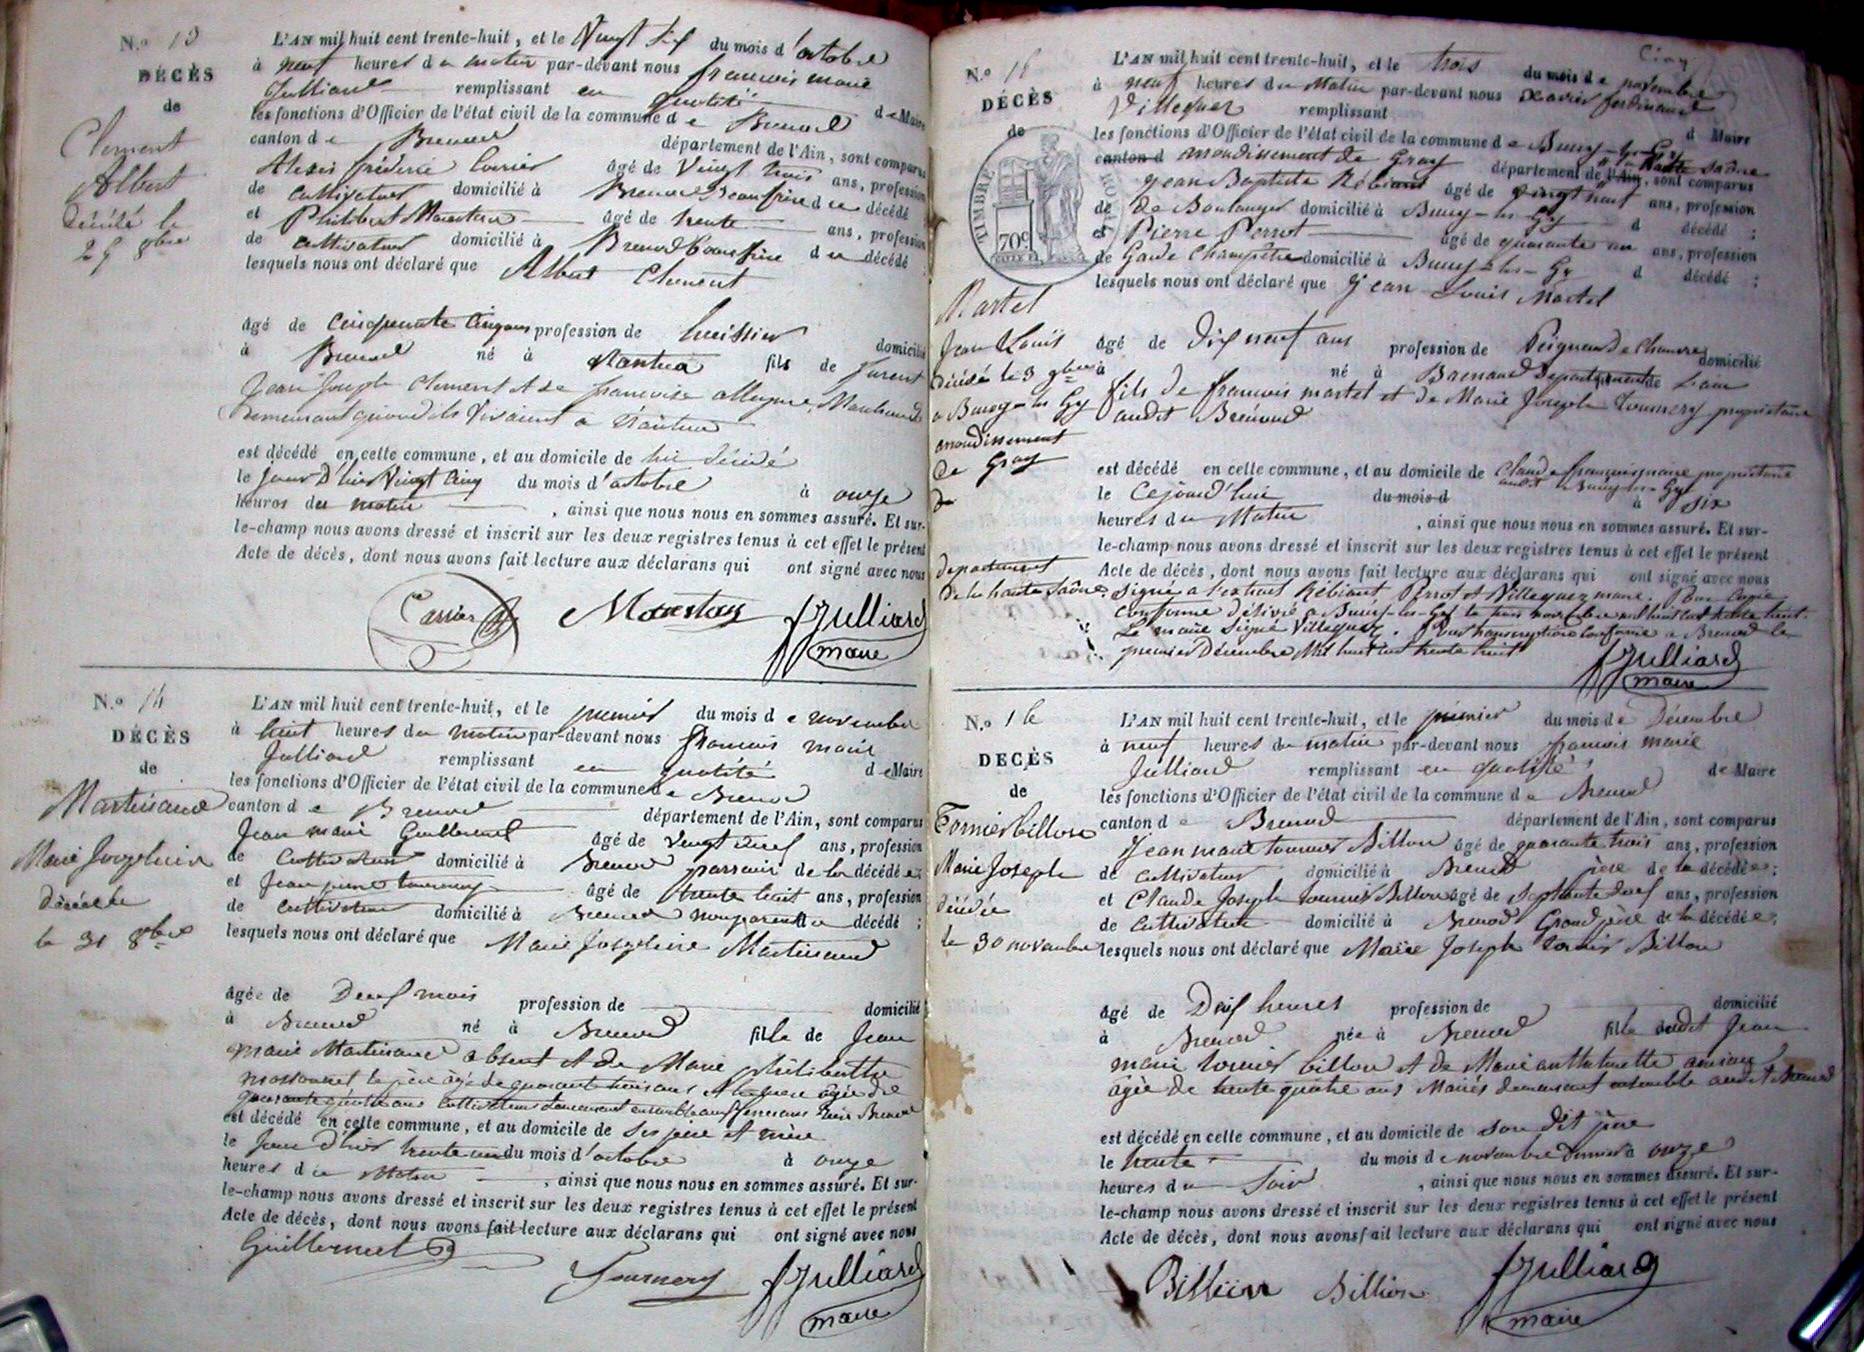 N.° 13
DÉCÈS
de
Clement
Albert
Décédé le
25 8bre
L'AN mil huit cent trente-huit, et le Vingt Six du mois d'octobre
à neuf heures du matin par-devant nous francois marie
Julliard remplissant en qualité de Maire
les fonctions d'Officier de l'état civil de la commune de Brenod
canton de Brenod département de l'Ain, sont comparus
Alexis frédéric Carrier âgé de Vingt trois ans, profession
de cultivateur domicilié à Brenod Beaufrère du décédé
et Philibert âgé de trente ans, profession
de cultivateur domicilié à Brenod Beaufrère du décédé ;
lesquels nous ont déclaré que Albert Clement
âgé de cinquante cinq ans profession de huissier domicilié
à Brenod né à Nantua fils de furent
Jean Joseph Clement et de francoise
demeurant quand ils Vivaient a Nantua
est décédé en cette commune, et au domicile de lui décédé
le jour D'hier Vingt Cinq du mois d'octobre à onze
heures du matin, ainsi que nous nous en sommes assuré. Et sur-
le-champ nous avons dressé et inscrit sur les deux registres tenus à cet effet le présent
Acte de décès, dont nous avons fait lecture aux déclarans qui ont signé avec nous
Carrier Julliard
maire
N.° 14
DÉCÈS
de
Martinand
Marie Josephine
Décédée
le 31 8bre
L'AN mil huit cent trente-huit, et le premier du mois de novembre
à huit heures du matin par-devant nous francois marie
Julliard remplissant en qualité de Maire
les fonctions d'Officier de l'état civil de la commune de Brenod
canton de Brenod département de l'Ain, sont comparus
Jean marie Guillermet âgé de vingt neuf ans, profession
de Cultivateur domicilié à Brenod parrain de la décédée
et Jean pierre tournery âgé de trente huit ans, profession
de cultivateur domicilié à Brenod non parent du décédé ;
lesquels nous ont déclaré que Marie Josephine Martinand
âgée de Deux mois profession de domicilié
à Brenod né à Brenod fille de Jean
marie Martinand absent et de Marie philiberthe
le père âgé de quarante trois ans et la mère agée de
quarante quatre ans cultivateurs demeurant ensemble Brenod
est décédé en cette commune, et au domicile de ses père et mère
le Jour d'hier trente un du mois d'octobre à onze
heures du Matin, ainsi que nous nous en sommes assuré. Et sur-
le-champ nous avons dressé et inscrit sur les deux registres tenus à cet effet le présent
Acte de décès, dont nous avons fait lecture aux déclarans qui ont signé avec nous
Guillermet Tournery Julliard
maire
N.° 15
DÉCÈS
de
TIMBRE ROYAL
70c
Martel
Jean Louis
Décédé le 3 9bre
a Bucey-les-Gy
arrondissement
de Gray
departement
de la haute Saône
L'AN mil huit cent trente-huit, et le trois du mois de novembre
à neuf heures du Matin par-devant nous Xavier ferdinand
Villequez remplissant d Maire
les fonctions d'Officier de l'état civil de la commune de Bucey-les-Gy
canton d arrondissement de Gray département de l'Ain, haute Saône sont comparus
Jean Baptiste Rébiant âgé de vingt huit ans, profession
de de Boulanger domicilié à Bucey-les-Gy d décédé ;
et Pierre Perrot âgé de quarante un ans, profession
de Garde Champêtre domicilié à Bucey-les-Gy d décédé ;
lesquels nous ont déclaré que Jean Louis Martel
âgé de Dix neuf ans profession de Peigneur de chanvre domicilié
à né à Brenod Departement de L'ain
fils de francois martel et de Marie Joseph Tournery proprietaire
audit Brénod
est décédé en cette commune, et au domicile de Claude francois proprietaire
audit Bucey-les-Gy
le Cejourd'hui du mois d à six
heures du Matin, ainsi que nous nous en sommes assuré. Et sur-
le-champ nous avons dressé et inscrit sur les deux registres tenus à cet effet le présent
Acte de décès, dont nous avons fait lecture aux déclarans qui ont signé avec nous
Signé a l'extrait Rébiant, Perrot et Villequez maire. Pour Copie
conforme délivré a Bucey-les-Gy le trois novembre mil huit cent trente huit.
Le maire Signé Villequez. Pour transcription conforme a Brenod le
premier Décembre Mil huit cent trente huit
Julliard
maire
N.° 16
DÉCÈS
de
Tornier billon
Marie Joseph
Décédée
le 30 novembre
L'AN mil huit cent trente-huit, et le premier du mois de Décembre
à neuf heures du matin par-devant nous francois marie
Julliard remplissant en qualité de Maire
les fonctions d'Officier de l'état civil de la commune de Brenod
canton de Brenod département de l'Ain, sont comparus
Jean marie tornier Billon âgé de quarante trois ans, profession
de cultivateur domicilié à Brenod père de la décédée ;
et Claude Joseph tornier Billon âgé de Septante neuf ans, profession
de Cultivateur domicilié à Brenod Grand père de la décédée ;
lesquels nous ont déclaré que Marie Joseph tornier Billon
âgé de Dix heures profession de domicilié
à Brenod née à Brenod fille dudit Jean
marie tornier billon et de Marie anthelmette
agée de trente quatre ans Mariés demeurant ensemble audit Brenod
est décédé en cette commune, et au domicile de son dit père
le trente du mois de novembre Dernier à onze
heures du Soir, ainsi que nous nous en sommes assuré. Et sur-
le-champ nous avons dressé et inscrit sur les deux registres tenus à cet effet le présent
Acte de décès, dont nous avons fait lecture aux déclarans qui ont signé avec nous
Billion Billion Julliard
maire